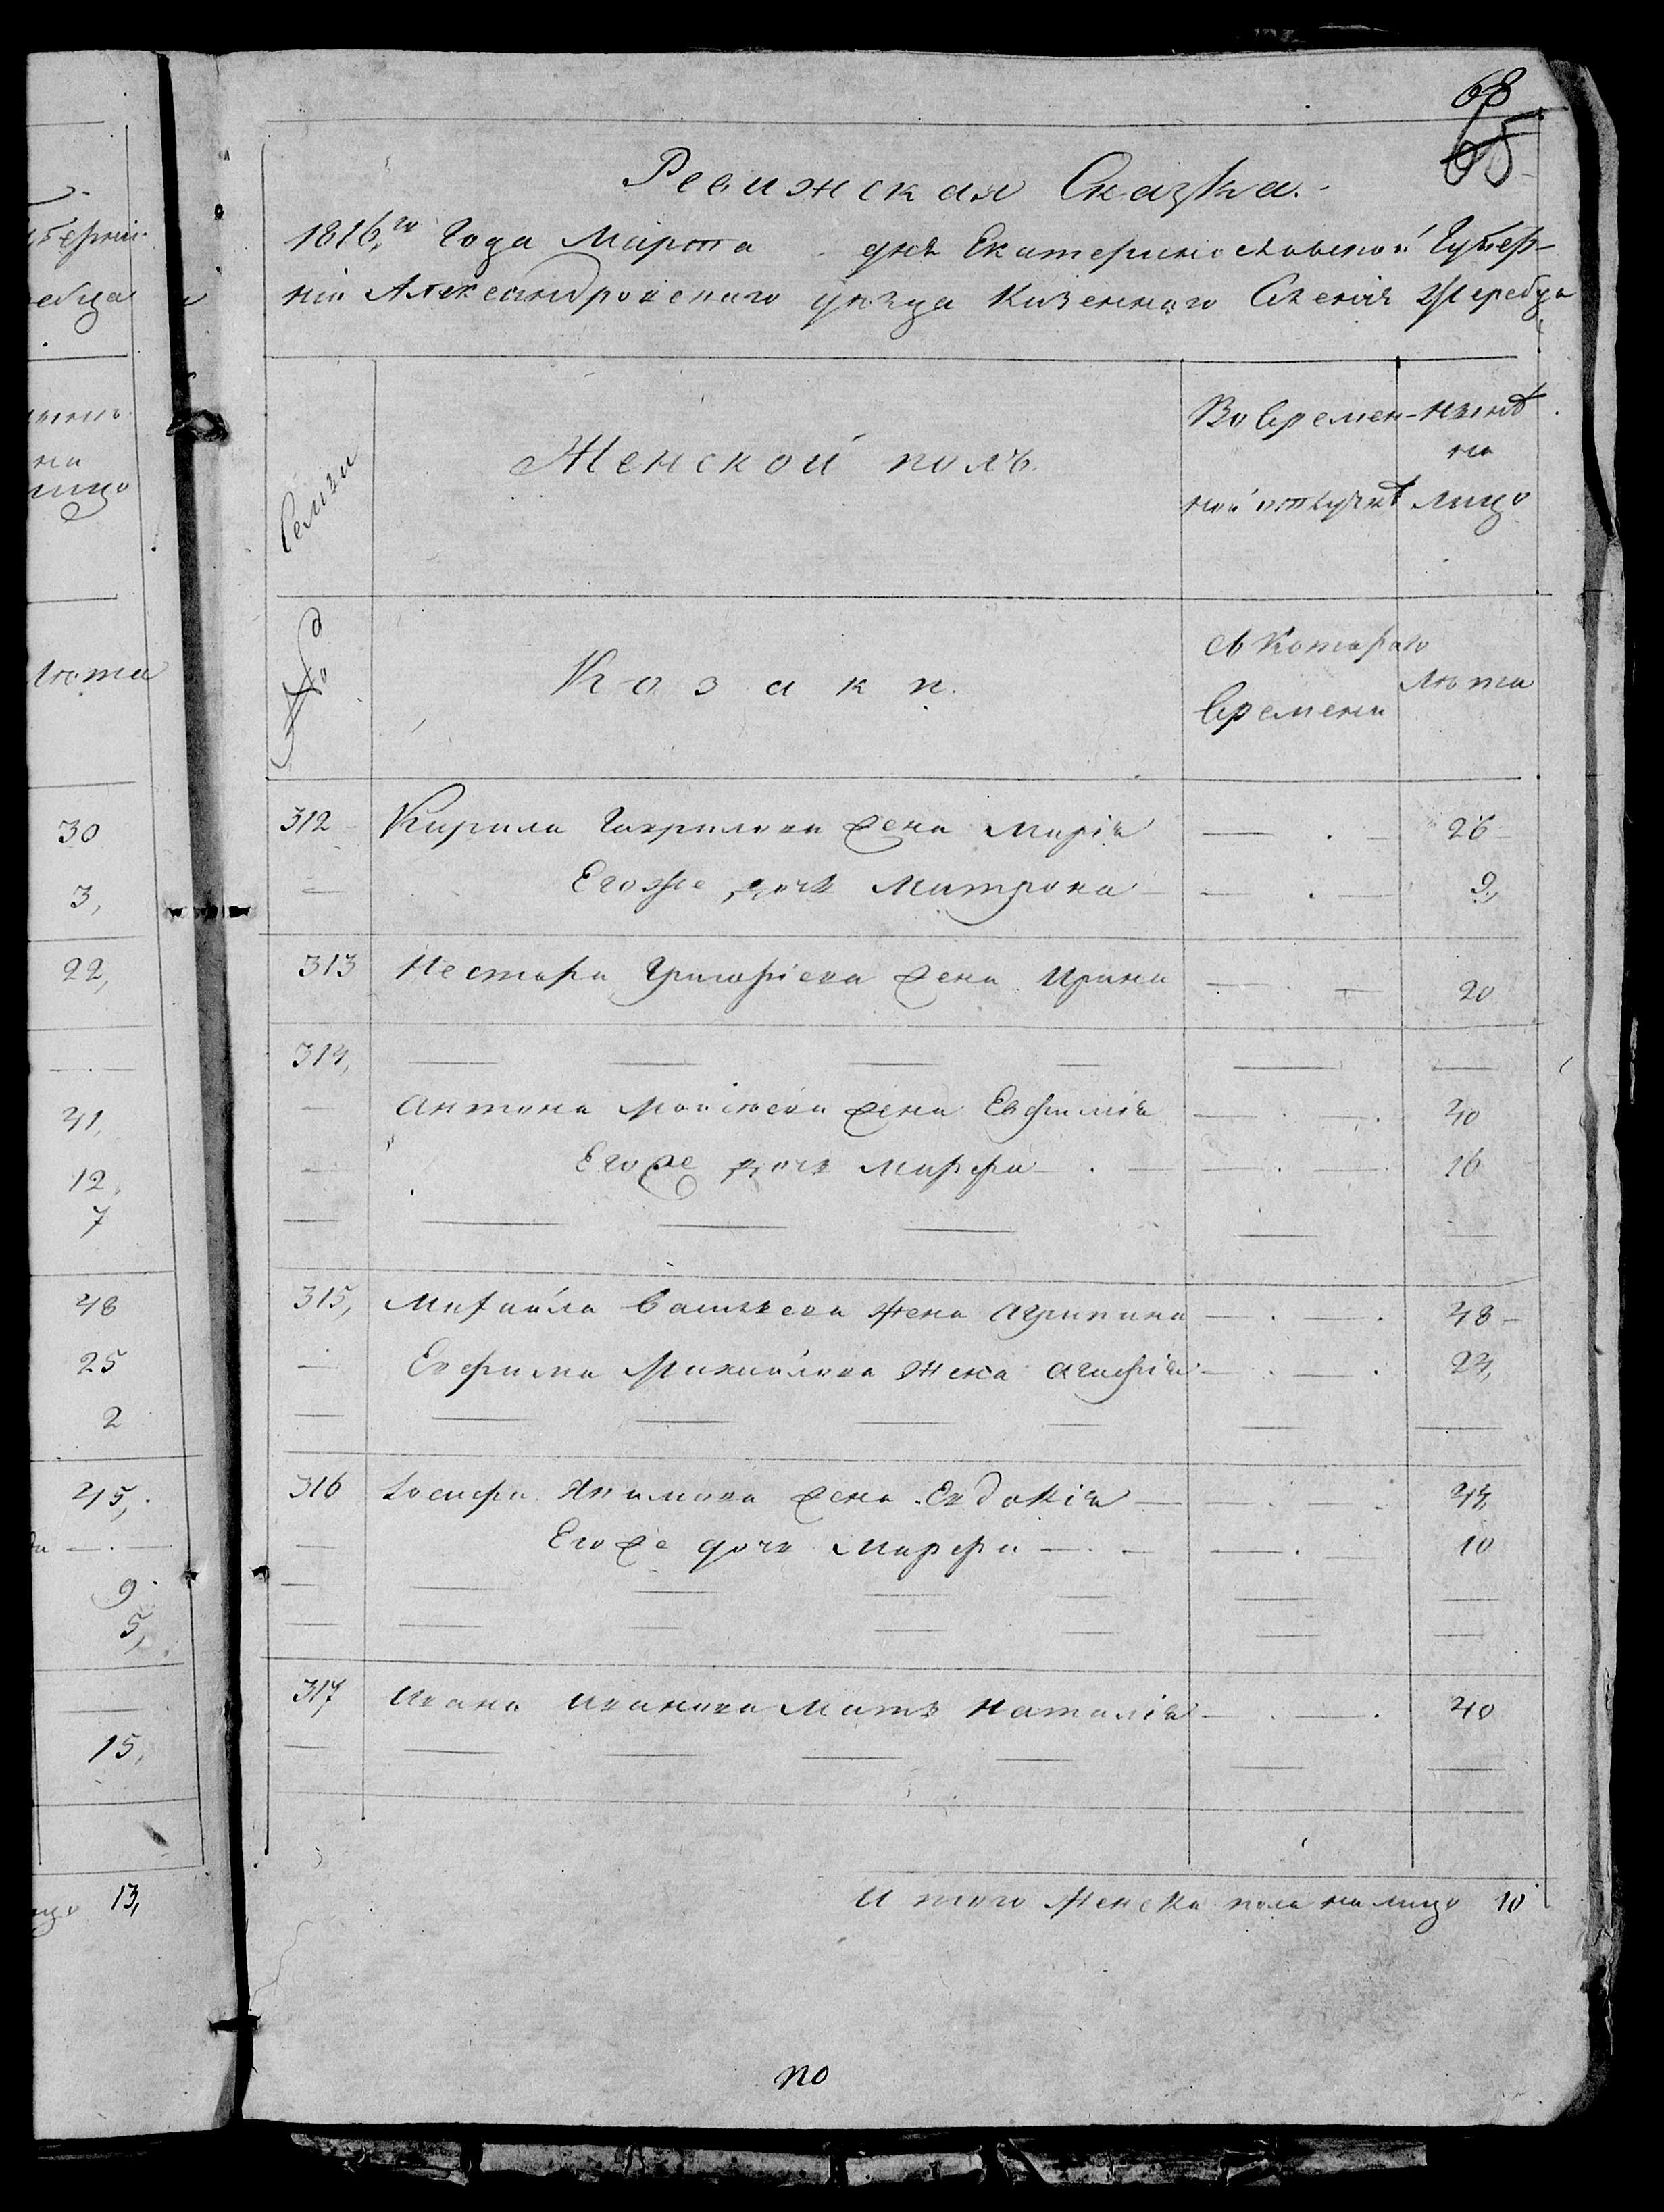 68
65
Ревижская Сказка.
1816,го Года Марта дня Екатеринославской Губер-
нии Александровскаго уезда Казеннаго Сления Жеребца
Семьи
Женской полъ.
Во времен-
ной отлучкѣ
нынѣ
на
лицо
№
Козаки.
Съ Котораго
Времени
Лѣта
312 Кирила Гаврилова жена Марія 26
Егоже дочь Матрона 9,
313 Нестора Григорiева жена Ирина 20
314,
Антона Моисѣева жена Евфимія 40
Егоже дочь Марфа 16
315, Михайла Васильева жена Агрипина 48
Евфима Михайлова жена Агафія 24,
316 Іосифа Якимова жена Евдокія 44,
Егоже дочь Марфа 10
317 Ивана Иванова Мать Наталія 40
Итого женска пола налицо 10
по
берніи
ебца
на
лицо
Лѣта
30
3,
22,
41,
12,
7
48
25
2
45,
9
5,
15,
13,